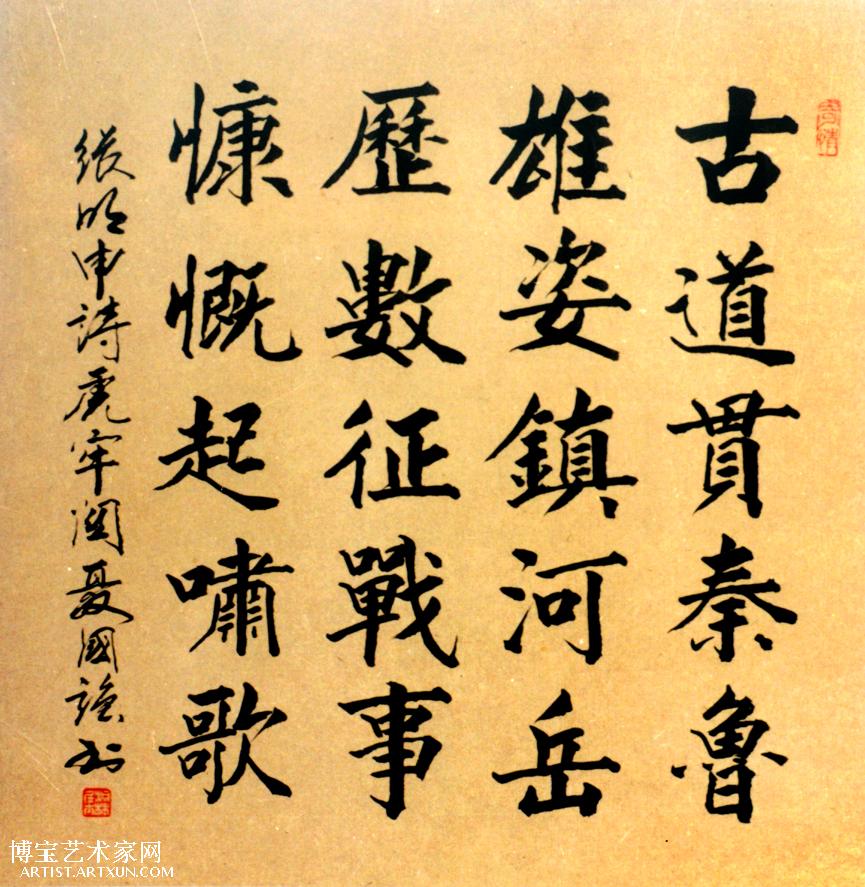 古道貫秦魯
雄姿鎮河岳
歷數征戰事
慷慨起嘯歌
張明申詩虎牢關夏國強书
博宝艺术家网
ARTIST.ARTXUN.COM